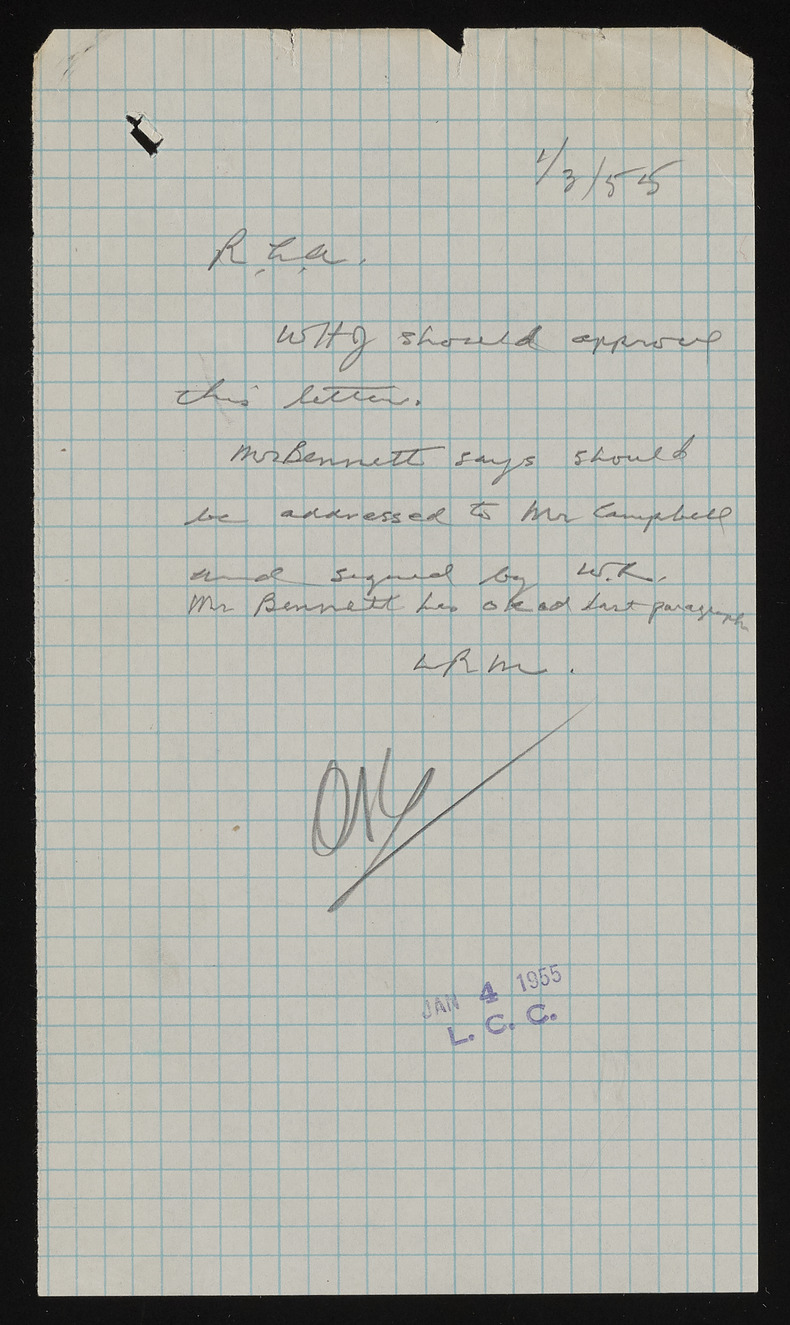 1/3/55
R.L.A.
WHJ should approve
this letter.
Mr Bennett says should
be addressed to Mr Campbell
and signed by W.R.
Mr Bennett has okad last paragraph
WRM.
JAN 4 1955
L. C. C.